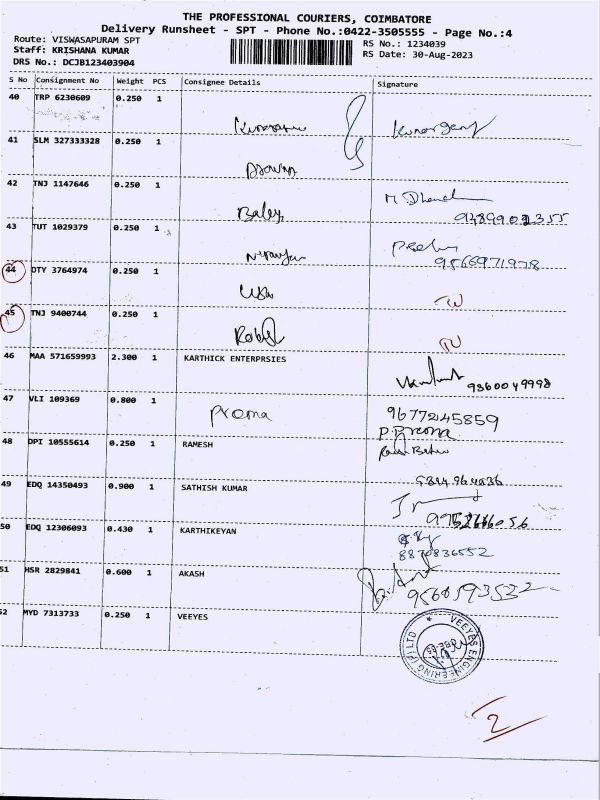 THE PROFESSIONAL COURIERS, COIMBATORE
Delivery Runsheet - SPT - Phone No.:0422-3505555 - Page No.:4
Route: VISWASAPURAM SPT
Staff: KRISHANA KUMAR
DRS No.: DCJB123403904
RS No.: 1234039
RS Date: 30-Aug-2023
S No Consignment No Weight PCS Consignee Details Signature
40 TRP 6230609 0.250 1
41 SLM 327333328 0.250 1
42 TNJ 1147646 0.250 1
Baley
43 TUT 1029379 0.250 1
9566971978
44 DTY 3764974 0.250 1
Usha
45 TNJ 9400744 0.250 1
46 MAA 571659993 2.300 1 KARTHICK ENTERPRSIES
9360049998
47 VLI 109369 0.800 1
Prema
9677245859
P. Prema
48 DPI 10555614 0.250 1 RAMESH
49 EDQ 14350493 0.900 1 SATHISH KUMAR
50 EDQ 12306093 0.430 1 KARTHIKEYAN
8870836552
51 HSR 2829841 0.600 1 AKASH
52 MYD 7313733 0.250 1 VEEYES
VEEYES ENGINEERING (P) LTD
2